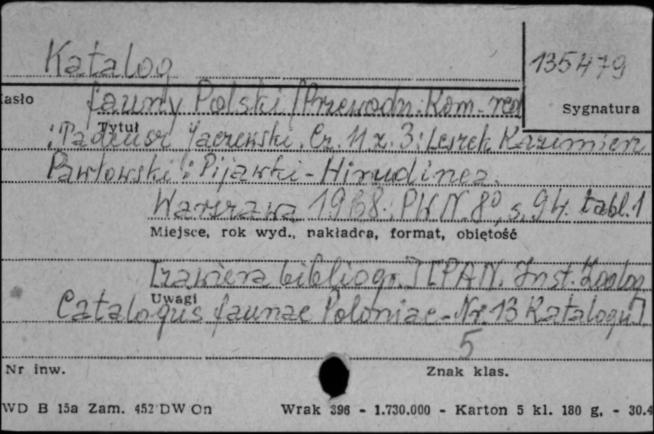 Katalog
135479
asło
fauny Polski [Przewodn. Kom. red.
Sygnatura
Tytuł
: Tadeusz Jaczewski. Cz. 11 z. 3: Leszek Kazimierz
Pawłowski: Pijawki - Hirudinea.
Warszawa 1968. PWN. 8°, s. 94. tabl. 1
Miejsce, rok wyd., nakładca, format, objętość
[zawiera bibliogr.] [PAN. Inst. Zoolog.
Uwagi
Catalogus faunae Poloniae - Nr. 13 Katalogu].
5
Nr inw.
Znak klas.
WD B 15a Zam. 452 DW On
Wrak 396 - 1.730.000 - Karton 5 kl. 180 g. - 30.4